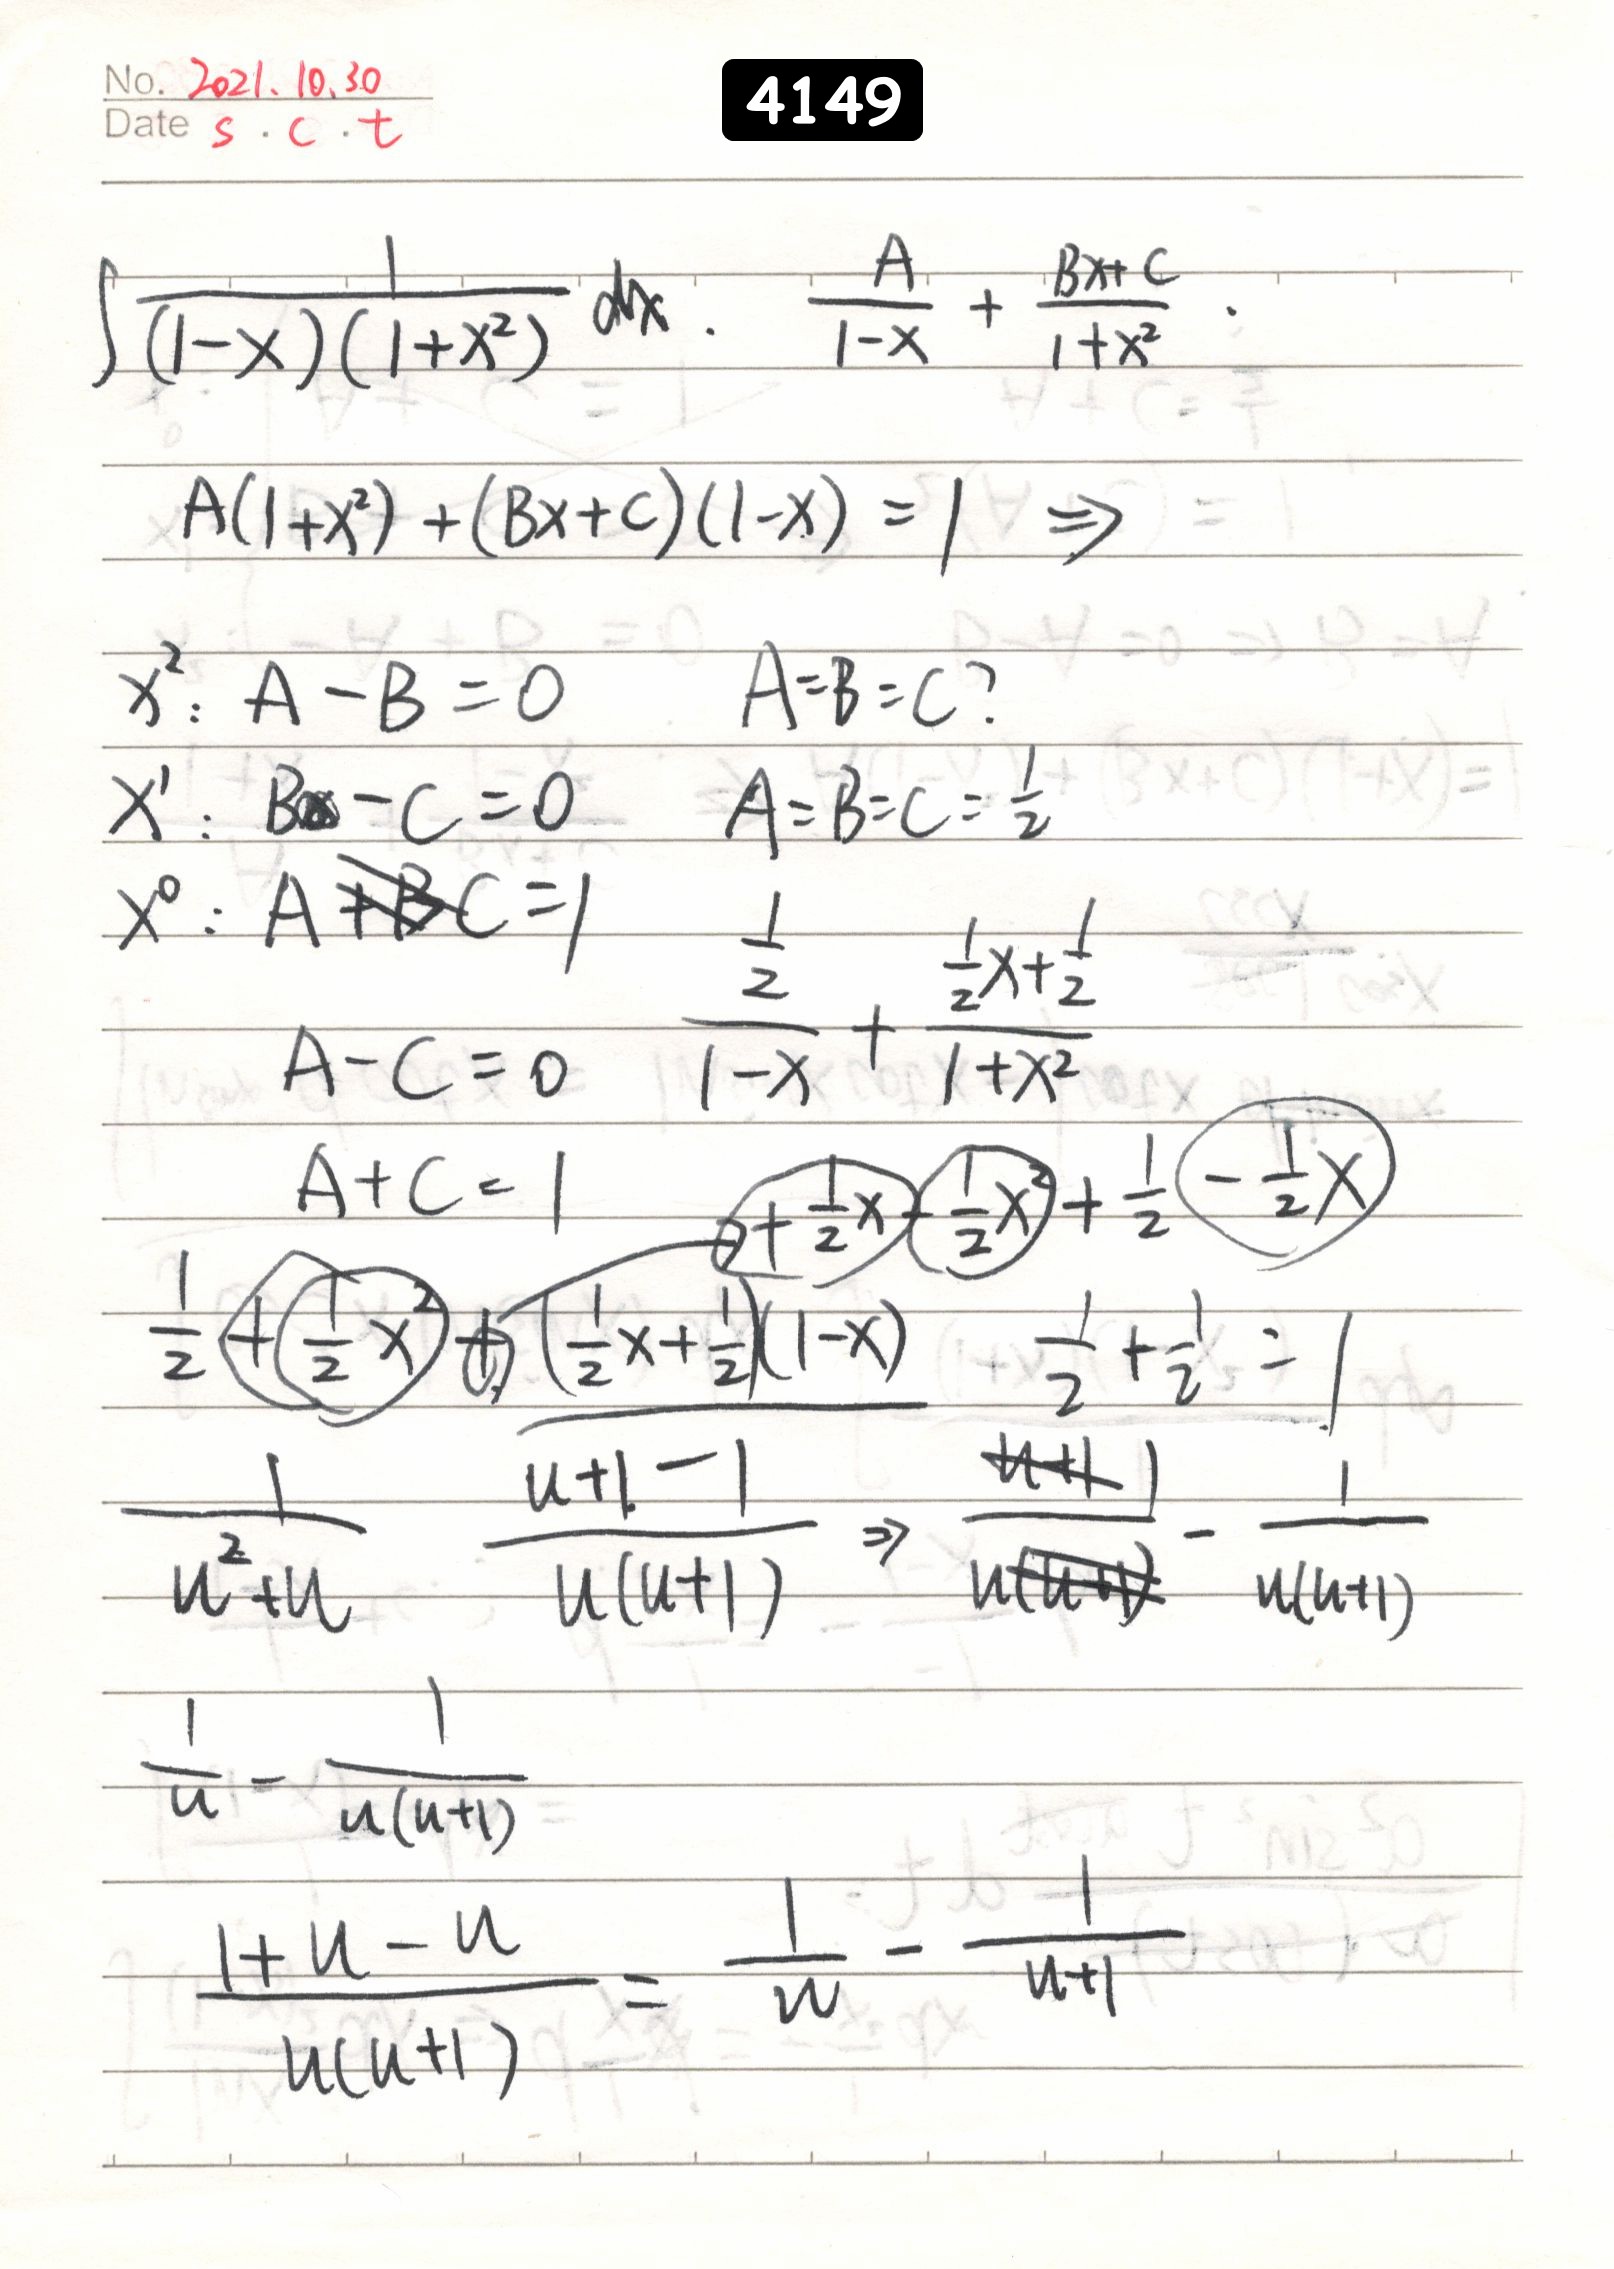 No. 2021.10.30
Date s . c . t
4149
∫ 1/((1-x)(1+x²)) dx . A/(1-x) + (Bx+C)/(1+x²) .
A(1+x²) + (Bx+C)(1-x) = 1 ⇒
x²: A - B = 0 A=B=C?
x¹: B - C = 0 A=B=C=1/2
x⁰: A +B C = 1
(1/2)/(1-x) + (1/2 x + 1/2)/(1+x²)
A - C = 0
A + C = 1 + 1/2 x - 1/2 x² + 1/2 - 1/2 x
1/2 + 1/2 x² + (1/2 x + 1/2)(1-x) 1/2 + 1/2 = 1
1/(u²+u) (u+1-1)/(u(u+1)) ⇒ u+1 1/(u(u+1)) - 1/(u(u+1))
1/u - 1/(u(u+1))
(1+u-u)/(u(u+1)) = 1/u - 1/(u+1)